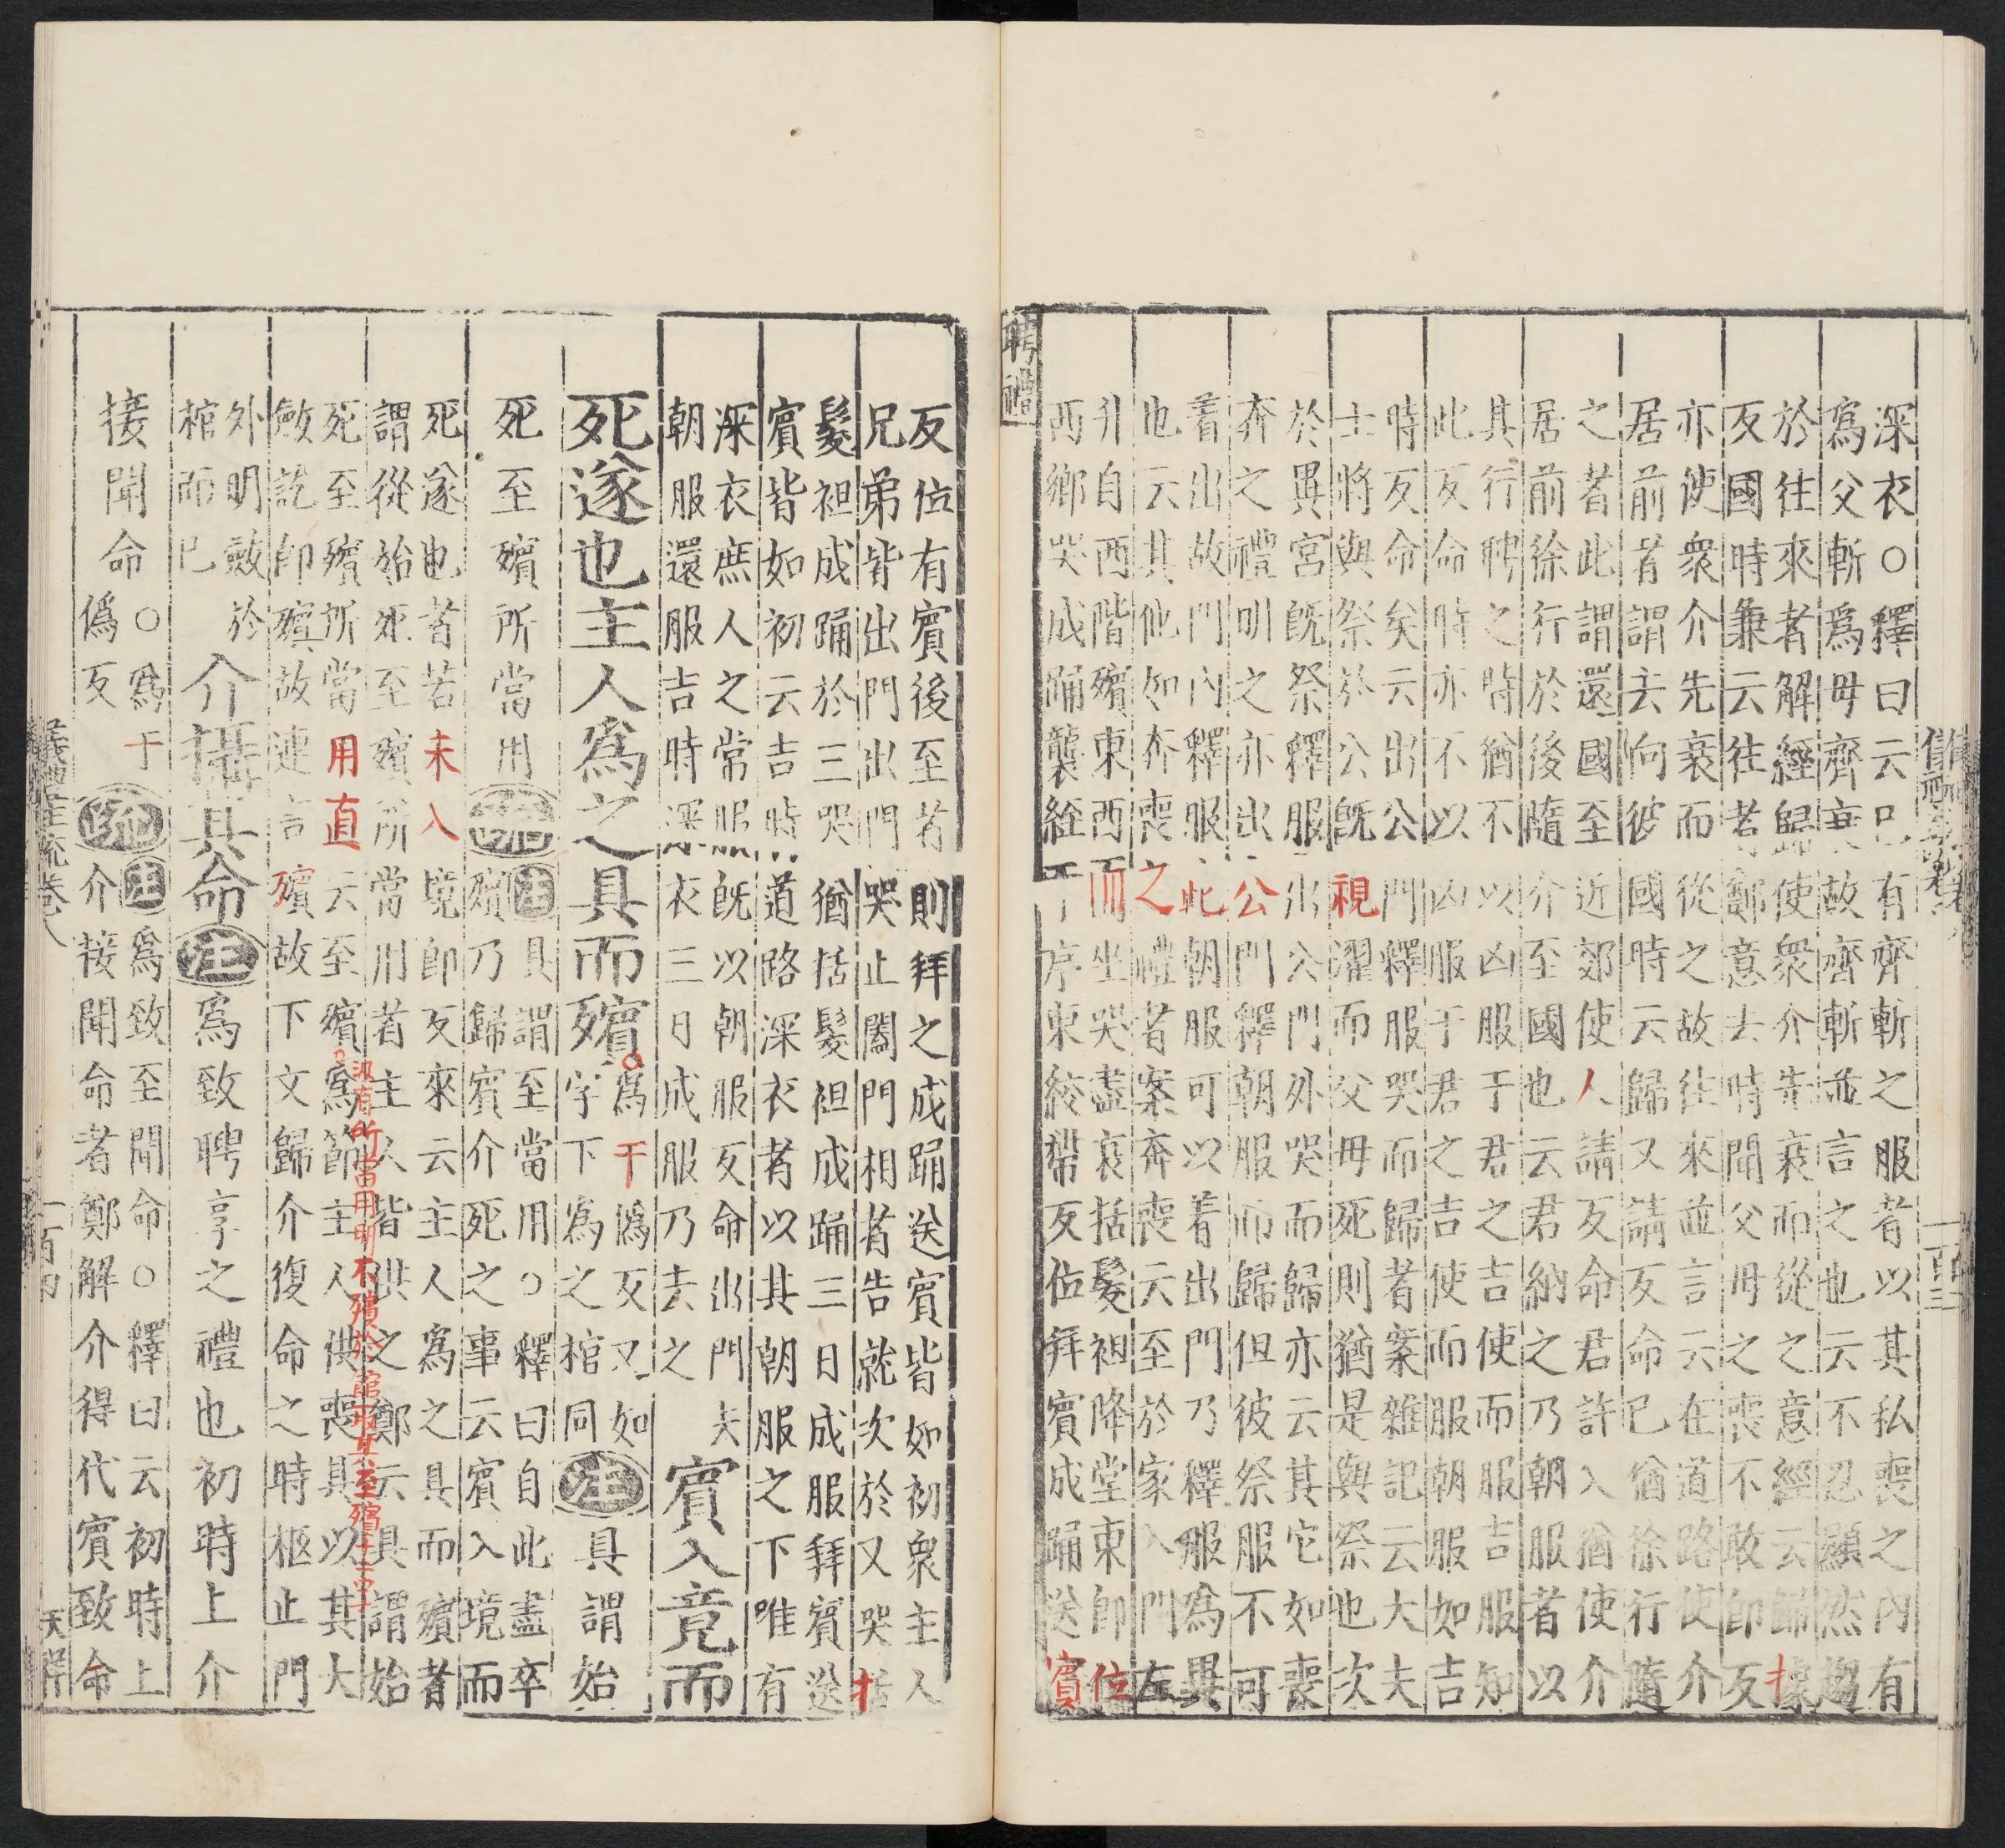 深衣○釋曰云已有齊斬之服者以其私喪之內有
爲父斬爲母齊衰故齊斬並言之也云不忍顯然趨
於往來者解經歸使衆介先衰而從之之意經云歸據
反國時兼云往者鄭意去時聞父母之喪不敢即反
亦使衆介先衰而從之故往來並言云在道路使介
居前者謂去向彼國時云歸又請反命已猶徐行隨
之者此謂還國至近郊使人請反命君許入猶使介
居前徐行於後隨介至國也云君納之乃朝服者以
其行聘之時猶不以凶服于君之吉使而服吉服知
此反命時亦不以凶服于君之吉使而服朝服如吉
時反命矣云出公門釋服哭而歸者案雜記云大夫
士將與祭於公既視濯而父母死則猶是與祭也次
於異宮既祭釋服出公門外哭而歸亦云其它如喪
奔之禮明之亦出公門釋朝服而歸但彼祭服不可
着出故門內釋服此朝服可以着出門乃釋服爲異
也云其他如奔喪之禮者案奔喪云至於家入門左
升自西階殯東西面坐哭盡哀括髮袒降堂東即位
西鄉哭成踊襲絰于序東絞帶反位拜賓成踊送賓
聘禮
反位有賓後至者則拜之成踊送賓皆如初衆主人
兄弟皆出門出門哭止闔門相者告就次於又哭括
髮袒成踊於三哭猶括髮袒成踊三日成服拜賓送
賓皆如初云吉時道路深衣者以其朝服之下唯有
深衣庶人之常服既以朝服反命出門夫
朝服還服吉時深衣三日成服乃去之
賓入竟而
死遂也主人爲之具而殯
爲于僞反又如
字下爲之棺同
注
具謂始
死至殯所當用
疏
注
具謂至當用○釋曰自此盡卒
殯乃歸賓介死之事云賓入境而
死遂也者若未入境即反來云主人爲之具而殯者
謂從始死至殯所當用者主人皆供之鄭云具謂始
死至殯所當用直云至殯爲節主人供喪具以其大
斂訖即殯故連言殯故下文歸介復命之時柩止門
外明斂於
棺而已
介攝其命
注
爲致聘享之禮也初時上介
接聞命○爲于
僞反
疏
注
爲致至聞命○釋曰云初時上
介接聞命者鄭解介得代賓致命